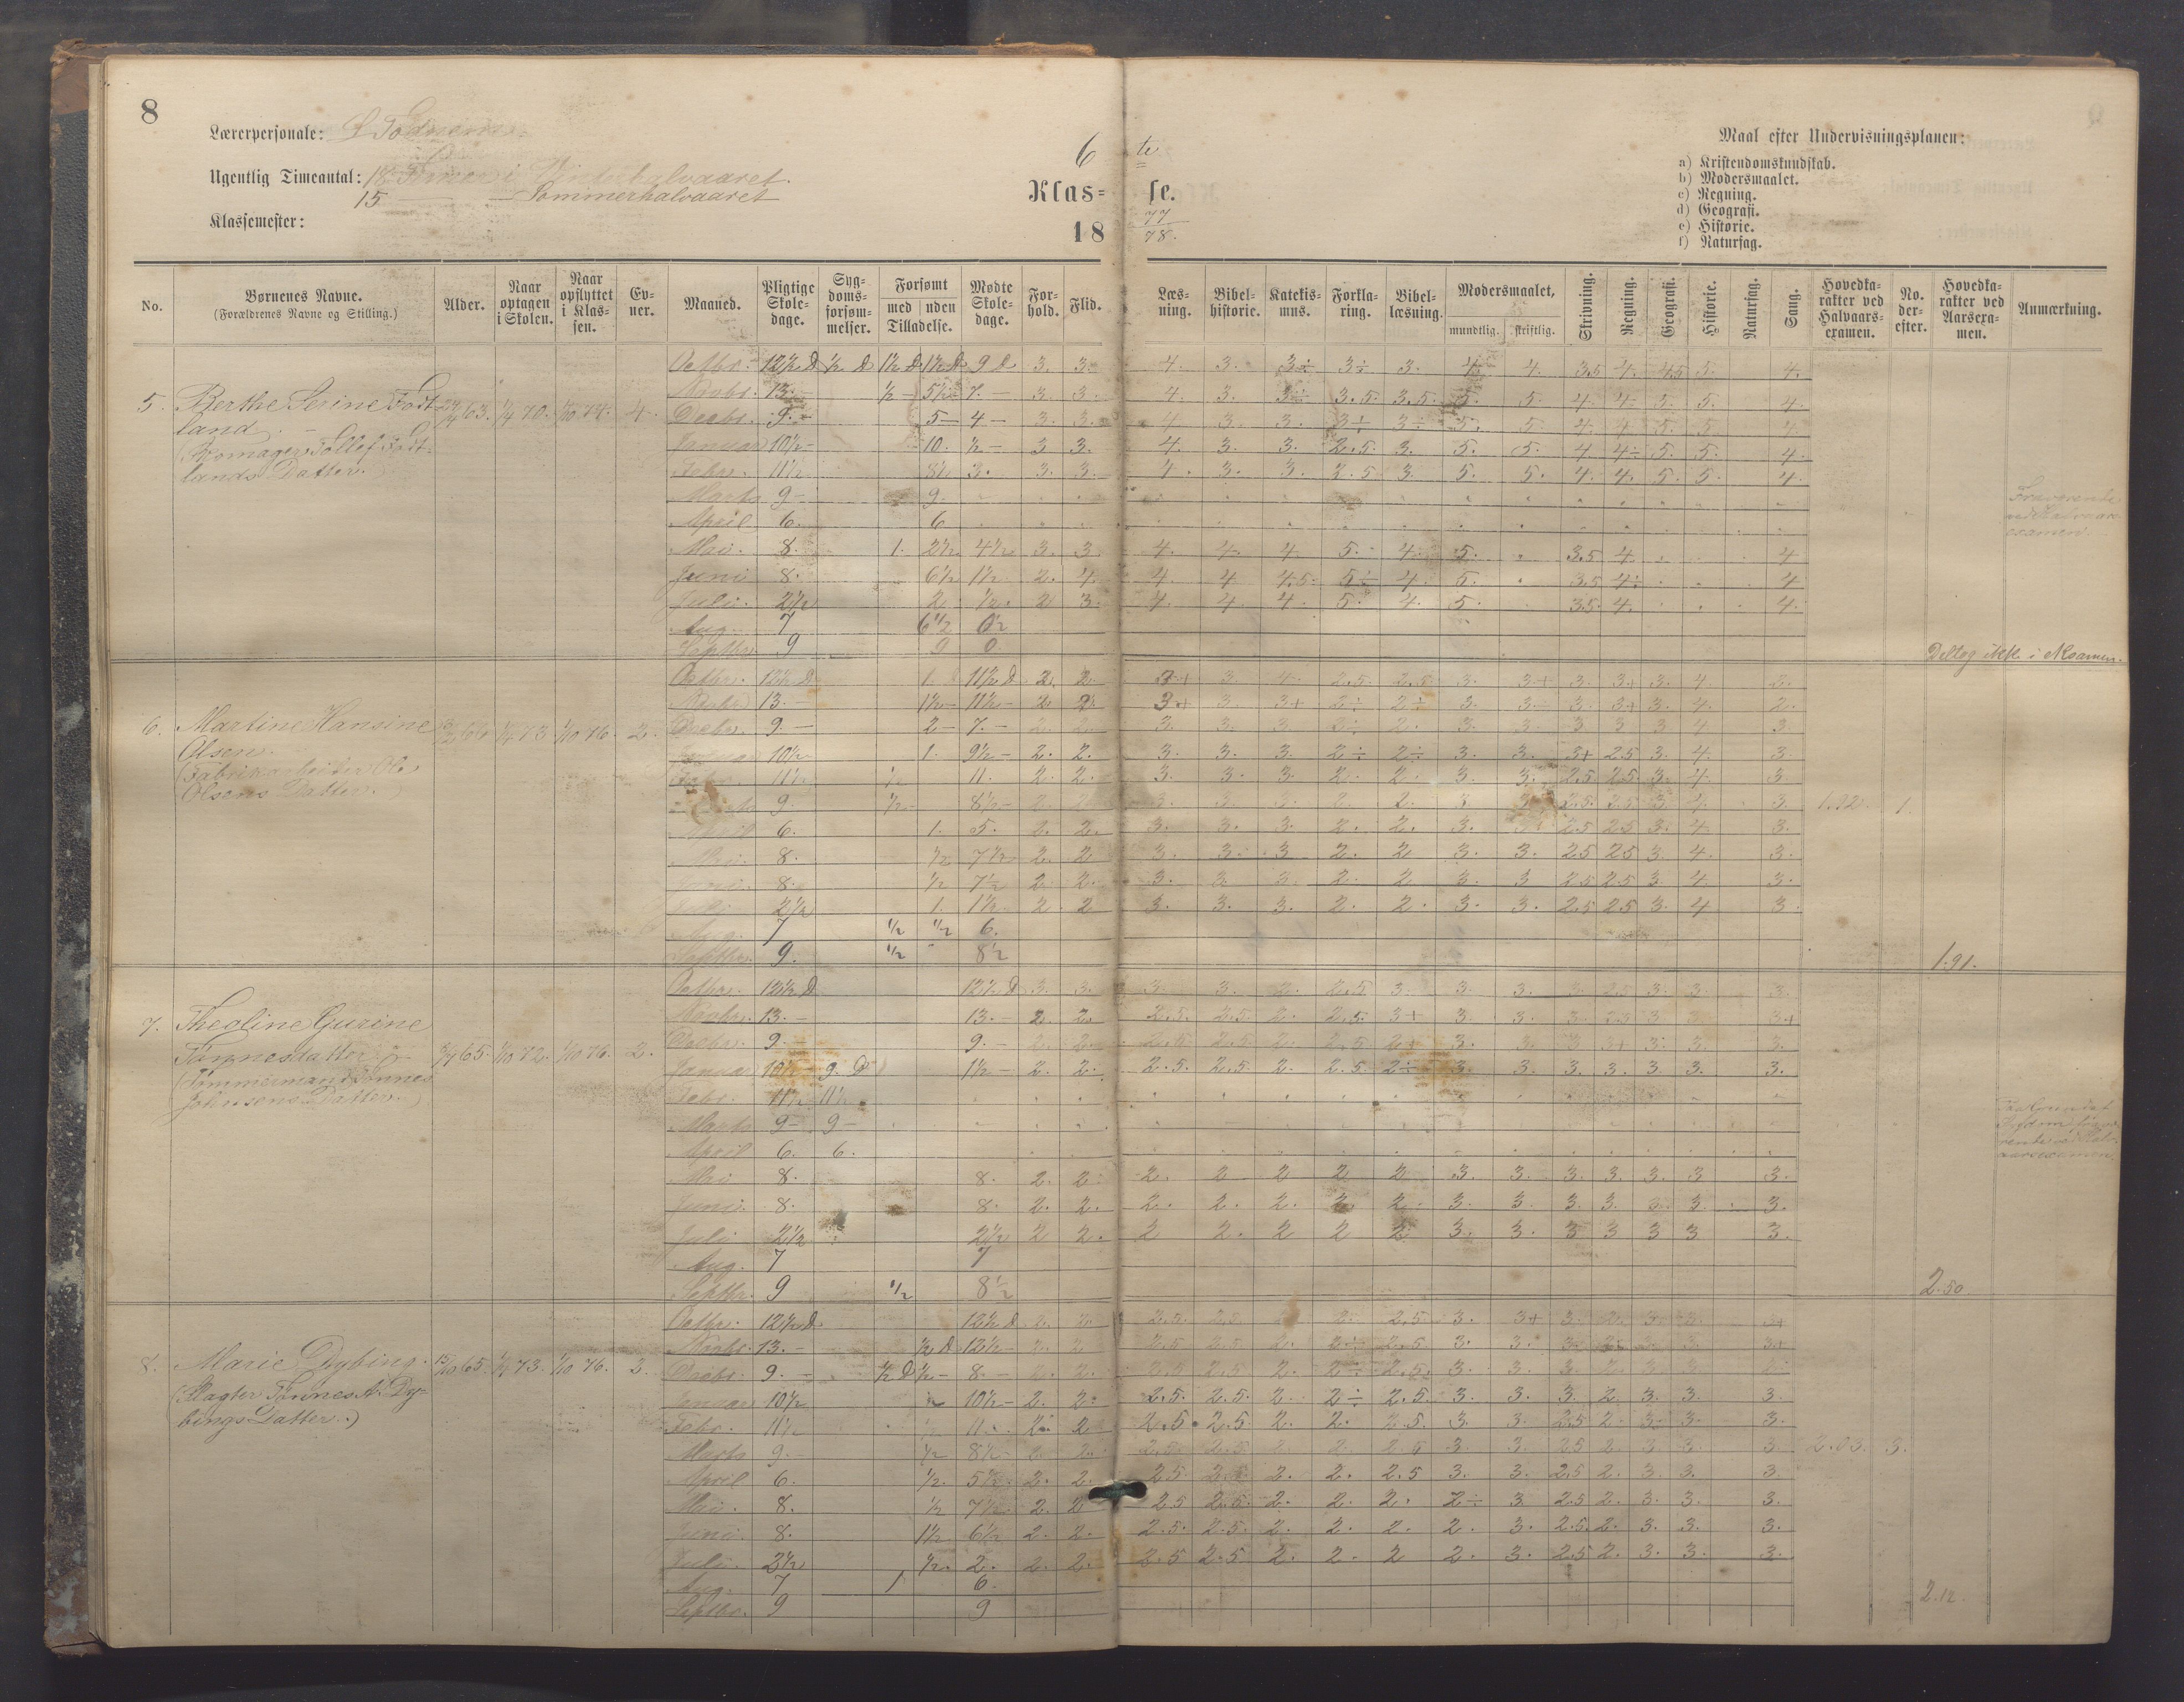 8
Lærerpersonale: S Todnem
Ugentlig Timeantal: 18 Timer i Vinterhalvaaret.
15 — — Sommerhalvaaret
Klassemester:
6 te
Klas= se.
18 77
78.
Maal efter Undervisningsplanen:
a) Kristendomskundskab.
b) Modersmaalet.
c) Regning.
d) Geografi.
e) Historie.
f) Naturfag.
No. Børnenes Navne. (Forældrenes Navne og Stilling.) Alder. Naar optagen i Skolen. Naar opflyttet i Klassen. Evner. Maaned. Pligtige Skoledage. Sygdomsforsømmelser. Forsømt med uden Tilladelse. Mødte Skoledage. Forhold. Flid. Læsning. Bibelhistorie. Katekismus. Forklaring. Bibellæsning. Modersmaalet, mundtlig. skriftlig. Skrivning. Regning. Geografi. Historie. Naturfag. Sang. Hovedkarakter ved Halvaarsexamen. No. derefter. Hovedkarakter ved Aarsexamen. Anmærkning.
Octbr. 12½ D ½ D 1½ D 1½ D 9 D 3. 3. 4. 3. 3÷ 3÷ 3. 4. 4. 3.5 4. 4.5 5. 4.
Novbr. 13. ½ – 5½ 7. – 3. 3. 4. 3. 3÷ 3.5 3.5. 5. 5. 4. 4÷ 5. 5. 4.
5. Berthe Serine Fodt-
land.
(Komager Tollef Fodt-
lands Datter.)
1/4 70. 1/10 74. 4.
Decbr. 9. – 5 – 4 – 3. 3. 4. 3. 3. 3÷ 3÷ 5. 5. 4. 4 5. 5 4.
Januar 10½ – 10. ½ – 3 3. 4. 3. 3. 2.5. 3. 5. 5. 4. 4÷ 5. 5. 4.
Febr. 11½ 8½ 3. 3. 3. 4. 3. 3. 2.5 3. 5. 5. 4. 4. 5. 5. 4.
Marts 9 – 9.
April 6. 6
Mai. 8. 1. 2½ 4½ 3. 3 4. 4. 4. 5. 4. 5. 3.5 4. 4
Juni 8. 6½ 1½ 2. 4. 4. 4 4.5. 5÷ 4. 5. 3.5 4÷ 4
Juli. 2½ 2. ½. 2 3. 4. 4. 4. 5. 4. 5. 3.5. 4. 4.
Aug. 7 6½ 0½
Septbr. 9 9 0
Fraværende
ved Halvaars-
examen.
Deltog ikke i Aksamen.
Octbr. 12½ D 1. 11½ D 2. 2. 3+ 3. 4. 2.5. 2.5 3. 3+ 3. 3+ 3. 4. 2.
Novbr 13. – 1½ – 11½ – 2. 2. 3+ 3. 3+ 2÷ 2÷ 3. 3. 3. 3+ 3. 4. 2.
6. Martine Hansine
Olsen.
(Fabrikarbeider Ole
Olsens Datter.)
1/4 73 1/10 76. 2.
Decbr. 9. – 2 – 7. – 2. 2. 3. 3. 3. 2÷ 2. 3. 3. 3 3 3 4 3.
Januar 10½ 1. 9½ – 2. 2. 3. 3. 3. 2÷ 2÷ 3. 3. 3+ 2.5 3. 4. 3.
Febr. 11½ ½ 11. 2. 2. 3. 3. 3. 2. 2. 3. 3. 2.5 2.5 3. 4. 3.
Marts 9. ½. – 8½ – 2. 2. 3. 3. 3. 2. 2. 3. 3. 2.5. 2.5 3. 4. 3. 1.92. 1.
April 6. 1. 5. 2. 2. 3. 3. 3. 2. 2. 3. 3. 2.5 2.5 3. 4. 3.
Mai. 8. ½ 7½ 2. 2 3. 3. 3 2. 2 3. 3. 2.5 2.5 3. 4. 3.
Juni. 8. ½ 7½ 2. 2. 3. 3. 3. 2. 2. 3. 3 2.5 2.5 3. 4. 3.
Juli 2½ 1. 1½ 2. 2 3. 3. 3. 2. 2. 3. 3. 2.5 2.5 3. 4 3.
Aug. 7 ½ ½ 6.
Septbr. 9. ½ 8½
1.91.
Octbr. 12½ D 12½ D 3. 3. 3. 3. 2. 2.5 3. 3. 3. 3. 2.5 3. 3. 3.
Novbr. 13. – 13. – 2. 2. 2.5. 2.5. 2. 2.5. 3+ 3. 3. 3. 2.5 3 3+
7. Theoline Gurine
Tønnesdatter
(Tømmermand Tønnes
Johnsens Datter.)
65. 1/10 72. 1/10 76. 2.
Decbr. 9. 9. – 2. 2. 2.5 2.5. 2. 2.5 2+ 3. 3. 3 3+ 3. 3. 3.
Januar 10½ – 9. D 1½ – 2. 2. 2.5. 2.5. 2. 2.5. 2÷ 3. 3. 3. 3. 3. 3. 3.
Febr. 11½ 11½
Marts 9 – 9 –
April 6. 6.
Mai 8. 8. 2. 2. 2. 2 2 2 2 3. 3. 3. 3. 3. 3 3.
Juni. 8. 8. 2. 2. 2. 2. 2. 2. 2. 3. 3. 3. 3. 3. 3. 3.
Juli 2½ 2½ 2 2. 2 2. 2 2 2 3. 3. 3 3 3 3 3.
Aug. 7 7
Septbr. 9 ½ 8½
2.50
Octbr. 12½ D 12½ D 2. 2. 2.5 2.5 2. 2. 2.5 3. 3+ 3. 2. 3. 3. 3+
Novbr. 13. – ½ D 12½ – 2. 2 2.5 2.5 2. 2÷ 2.5 3. 3. 3. 2÷ 3. 3. 3+
8. Marie Dybing.
(Slagter Tønnes A. Dy-
bings Datter.)
15/10 65. 1/4 73. 1/10 76. 2.
Decbr. 9. – ½ D ½ – 8. – 2. 2. 2.5 2.5 2. 2÷ 2.5. 3. 3. 3. 2. 3 3.
Januar 10½ 10½ – 2. 2. 2.5. 2.5. 2. 2÷ 2.5. 3. 3. 3. 2. 3. 3. 3.
Febr. 11½ 11. 2. 2 2.5 2.5. 2. 2. 2.5. 3. 3. 2.5 2. 3. 3. 3.
Marts 9. ½ 8½ – 2. 2. 2.5. 2.5. 2. 2. 2.5 3. 3. 2.5 2. 3 3. 3. 2.03. 3.
April 6. ½. 5½ 2. 2. 2.5. 2.5. 2. 2. 2.5 3. 3. 2.5 2. 3. 3. 3.
Mai. 8. ½ 7½. 2. 2 2.5 2.5. 2. 2. 2. 2÷ 3. 2.5 2. 3. 3. 3.
Juni. 8. 1½ 6½ 2. 2. 2.5. 2.5. 2. 2. 2. 2. 3. 2.5. 2. 3. 3. 3.
Juli 2½ ½. 2. 2. 2. 2.5 2.5. 2. 2. 2 2. 3. 2.5 2. 3. 3. 3.
Aug. 7 1 6.
Septbr. 9 9
2.12.